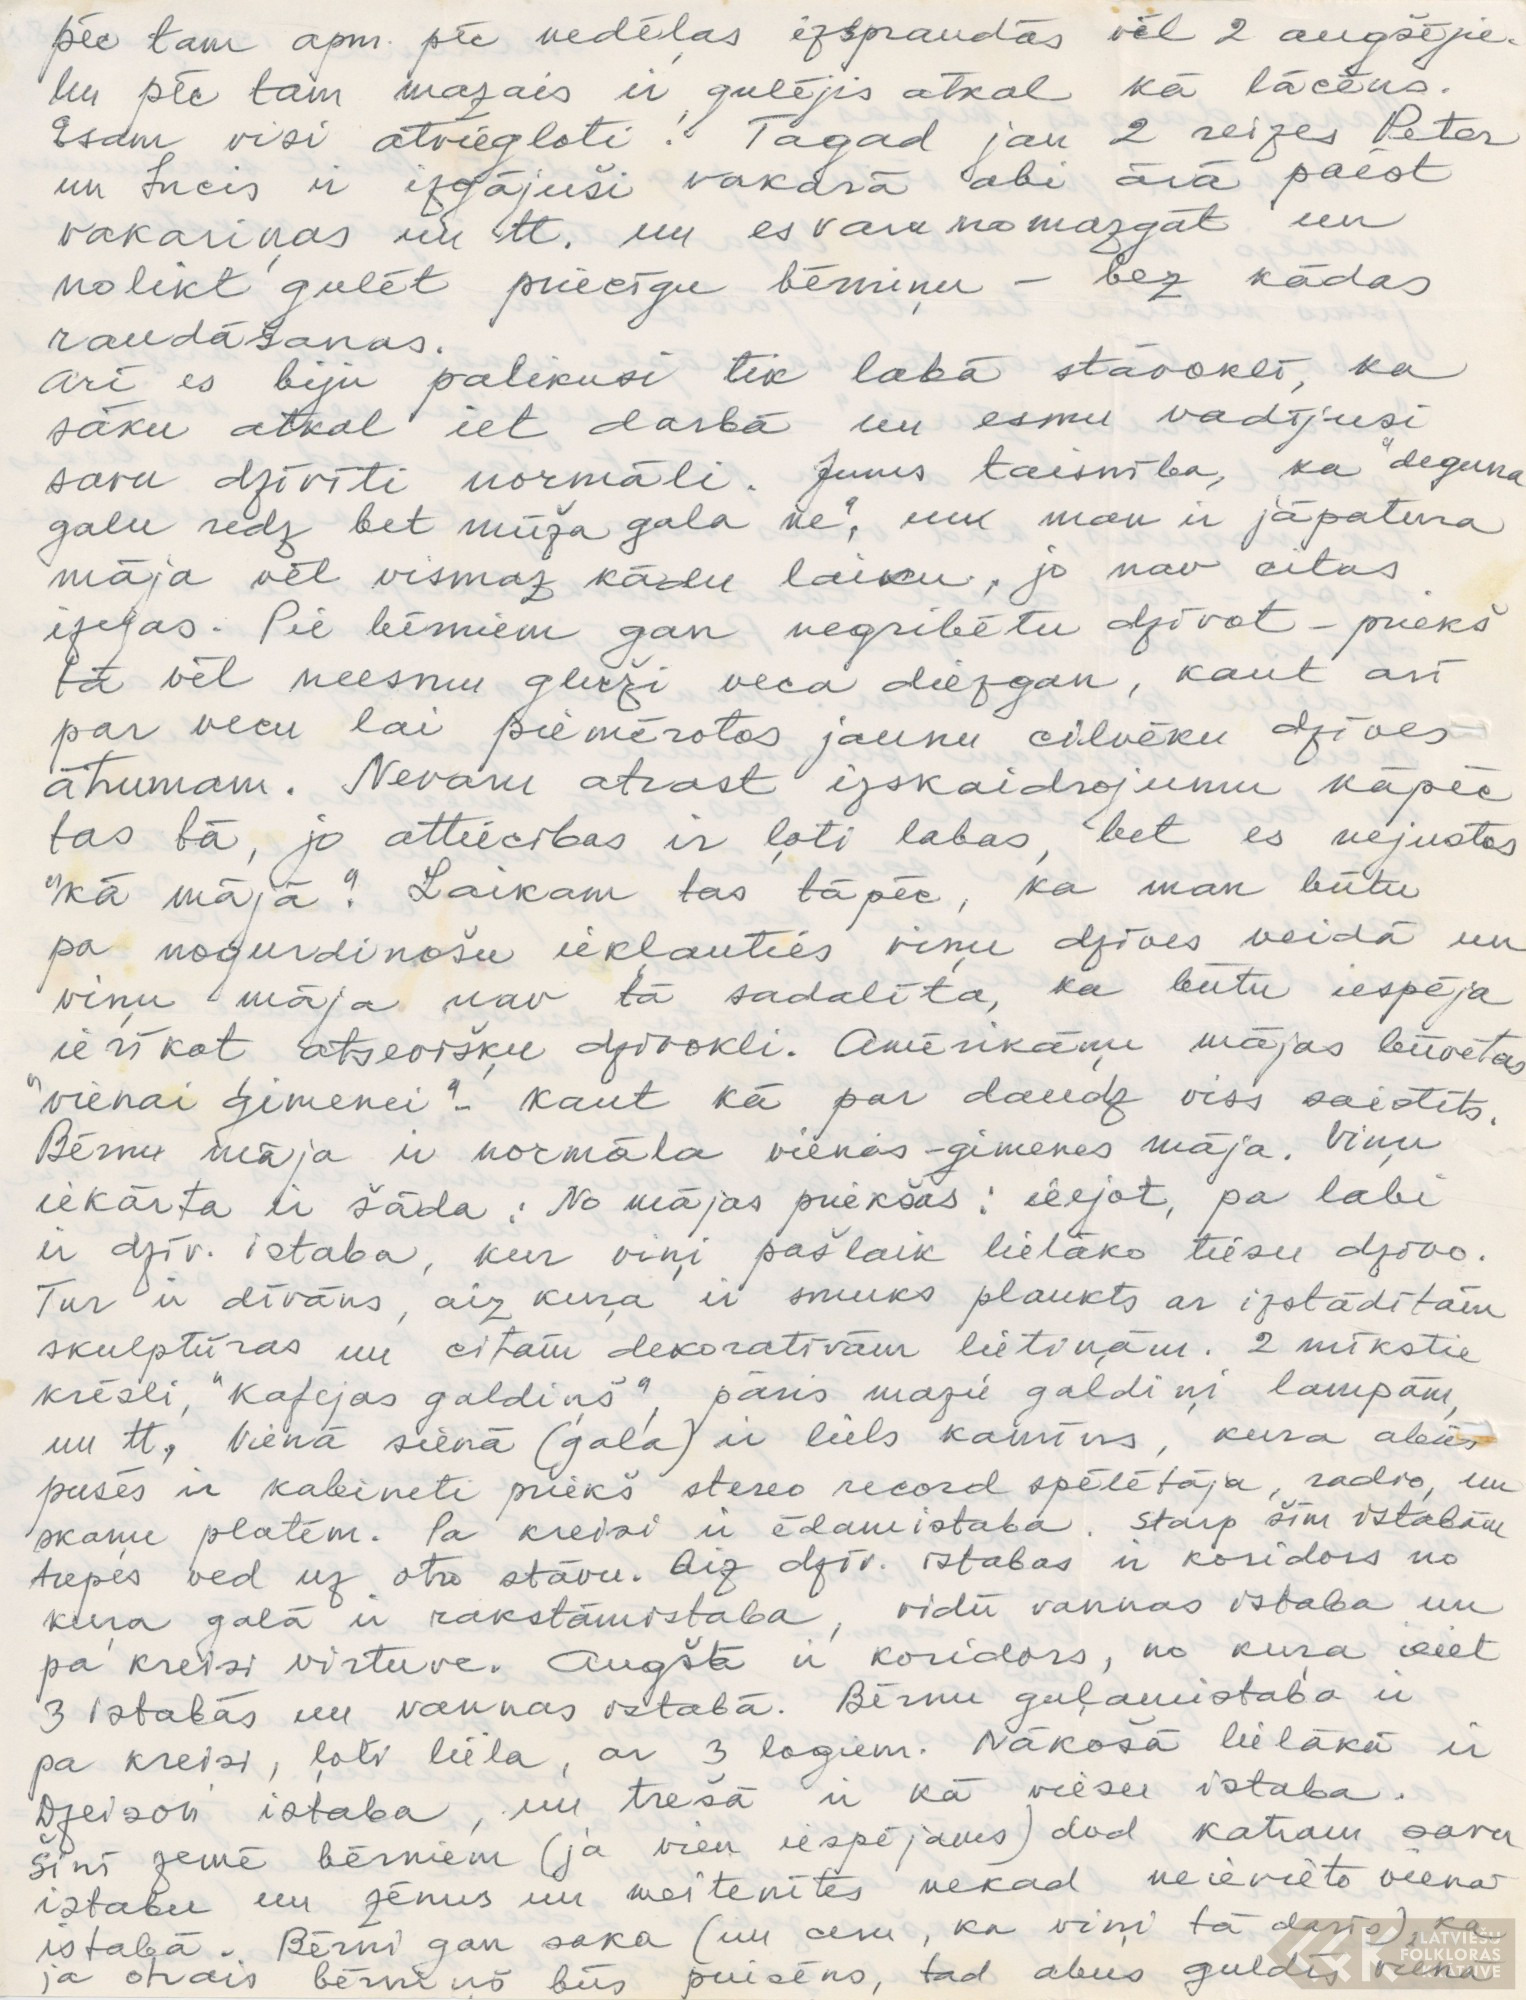 pēc tam apm. pēc nedēļas izspraudās vēl 2 augšējie.
Un pēc tam mazais ir gulējis atkal kā lācēns.
Esam visi atviegloti! Tagad jau 2 reizes Peter
un Incis ir izgājuši vakarā abi ārā paēst
vakariņas un tt. un es varu nomazgāt un
nolikt gulēt priecīgu bērniņu – bez kādas
raudāšanas.
Arī es biju palikusi tik labā stāvoklī, ka
sāku atkal iet darbā un esmu vadījusi
savu dzīvīti normāli. Jums taisnība, ka "deguna
galu redz bet mūža gala ne", un man ir jāpatura
māja vēl vismaz kādu laiku, jo nav citas
izejas. Pie bērniem gan negribētu dzīvot – priekš
tā vēl neesmu gluži veca diezgan, kaut arī
par vecu lai piemērotos jaunu cilvēku dzīves
ātrumam. Nevaru atrast izskaidrojumu kāpēc
tas tā, jo attiecības ir ļoti labas, bet es nejustos
"kā mājā". Laikam tas tāpēc, ka man būtu
pa nogurdinošu iekļauties viņu dzīves veidā un
viņu māja nav tā sadalīta, ka būtu iespēja
ierīkot atsevišķu dzīvokli. Amērikāņu mājas būvētas
"vienai ģimenei" – kaut kā par daudz viss saistīts.
Bērnu māja ir normāla vienas-ģimenes māja. Viņu
iekārta ir šāda: No mājas priekšas: ieejot, pa labi
ir dzīv. istaba, kur viņi pašlaik lielāko tiesu dzīvo.
Tur ir dīvāns, aiz kura ir smuks plaukts ar izstādītām
skulptūras un citām dekoratīvām lietiņām. 2 mīkstie
krēsli, "kafejas galdiņš", pāris mazie galdiņi lampām,
un tt. Vienā sienā (gala) ir liels kamīns, kura abās
pusēs ir kabineti priekš stereo record spēlētāja, radio, un
skaņu platēm. Pa kreisi ir ēdamistaba. Starp šīm istabām
trepes ved uz otro stāvu. Aiz dzīv. istabas ir koridors no
kuŗa galā ir rakstāmistaba, vidū vannas istaba un
pa kreisi virtuve. Augšā ir koridors, no kuŗa ieiet
3 istabās un vannas istabā. Bērnu guļamistaba ir
pa kreisi, ļoti liela, ar 3 logiem. Nākošā lielākā ir
Džeison istaba, un trešā ir kā viesu istaba.
Šinī zemē bērniem (ja vien iespējams) dod katram savu
istabu un zēnus un meitenītes nekad neievieto vienā
istabā. Bērni gan saka (un ceru, ka viņi tā darīs), ka
ja otrais bērniņš būs puisēns, tad abus guldīs vienā
LATVIEŠU
FOLKLORAS
KRĀTUVE